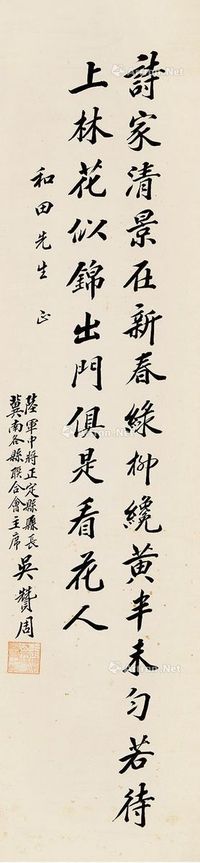 詩家清景在新春綠柳纔黃半未勻若待
上林花似錦出門俱是看花人
和田先生 正
陸軍中將正定縣縣長
冀南各縣聯合會主席
吳贊周